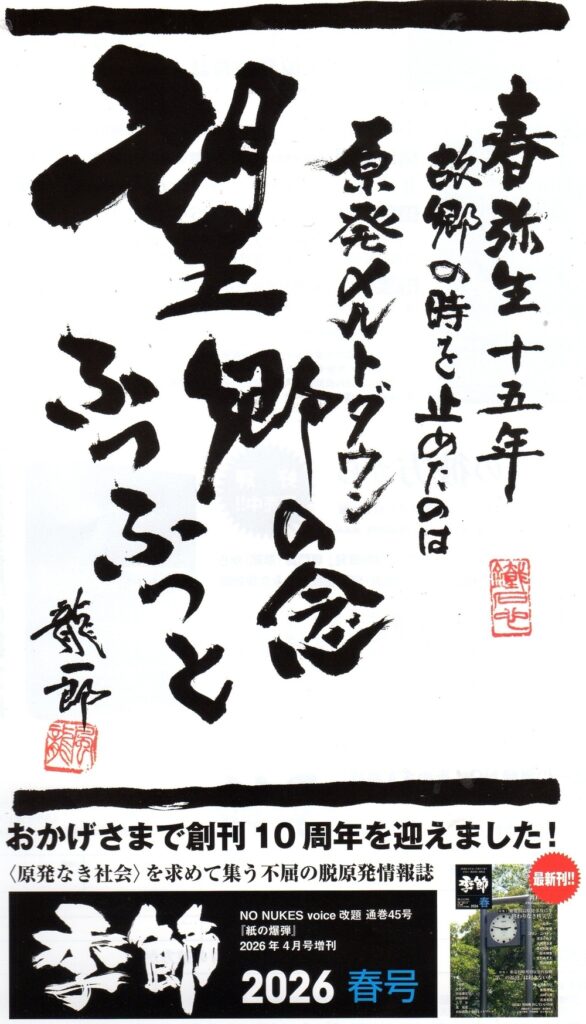 春弥生十五年
故郷の時を止めたのは
原発メルトダウン
望郷の念
ふつふつと
龍一郎
おかげさまで創刊10周年を迎えました!
〈原発なき社会〉を求めて集う不屈の脱原発情報誌
季節
NO NUKES voice 改題 通巻45号
『紙の爆弾』
2026年4月号増刊
2026 春号
最新刊!!
季節
春